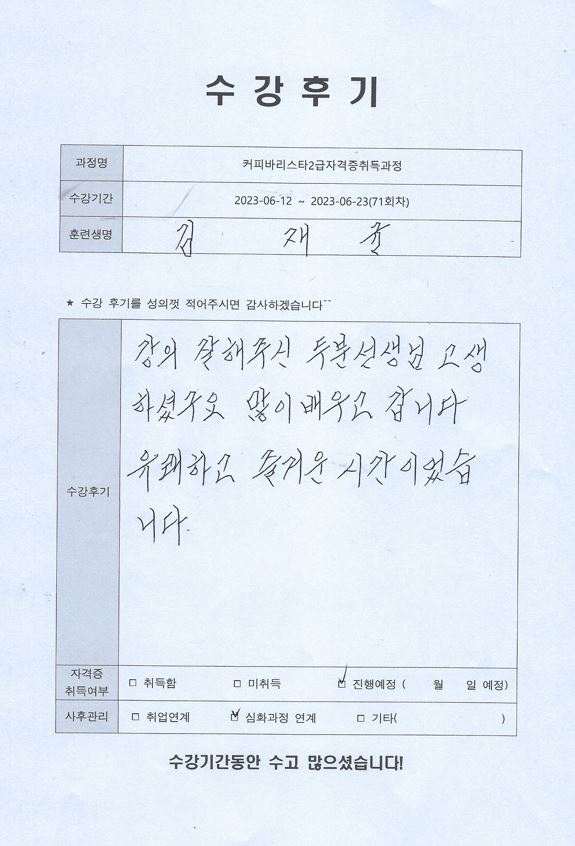 수강후기
과정명 커피바리스타2급자격증취득과정
수강기간 2023-06-12 ~ 2023-06-23(71회차)
훈련생명 김 재
★ 수강 후기를 성의껏 적어주시면 감사하겠습니다~~
수강후기
강의 잘해주신 두분선생님 고생
하셨구요 많이배우고 갑니다
유쾌하고 즐거운 시간이었습
니다.
자격증
취득여부
□ 취득함 □ 미취득 ☑ 진행예정 ( 월 일 예정)
사후관리 □ 취업연계 ☑ 심화과정 연계 □ 기타( )
수강기간동안 수고 많으셨습니다!